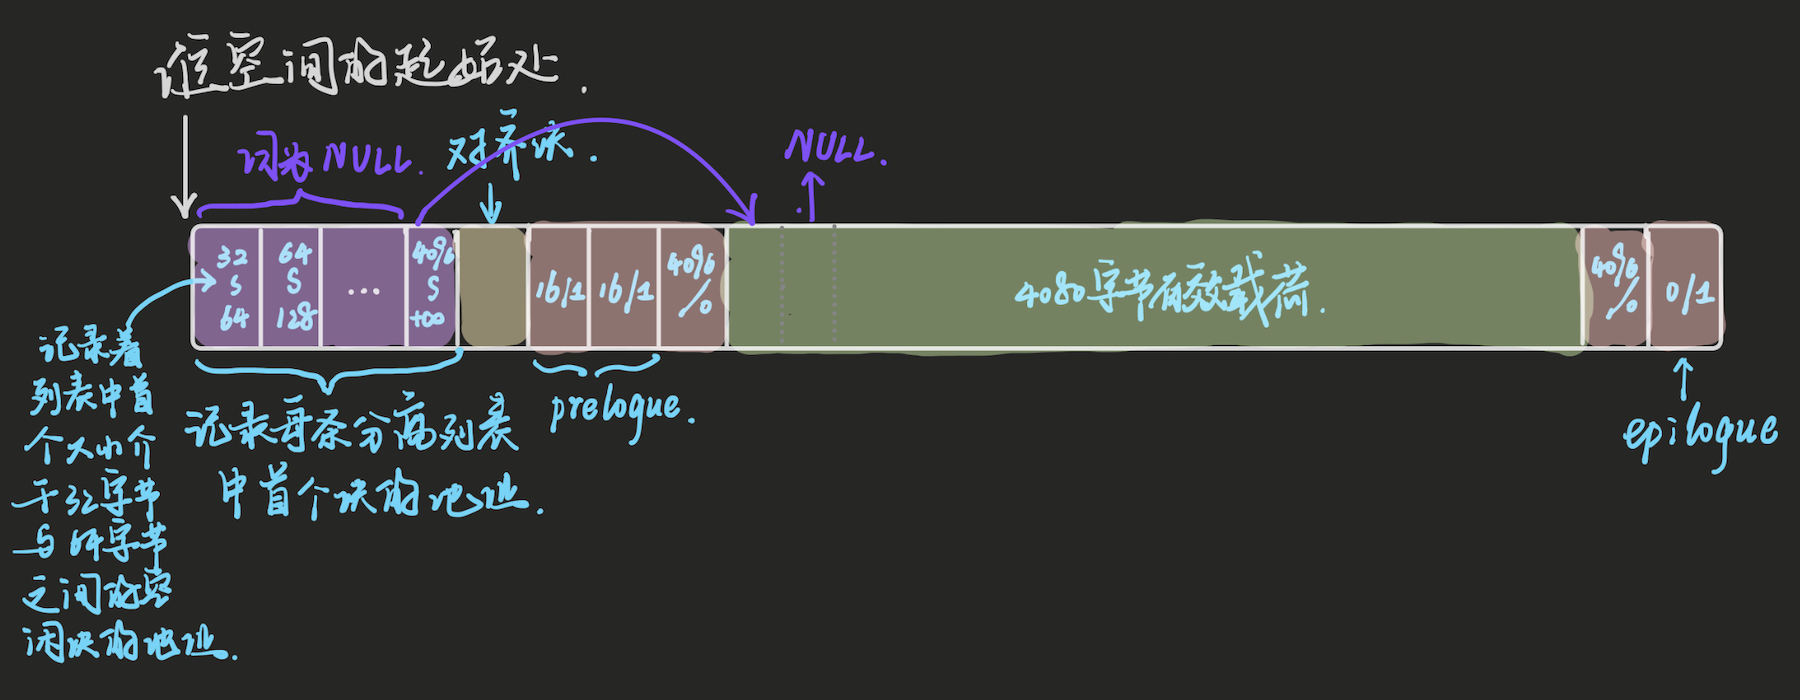 堆空间的起始处.
词为NULL.
对齐块.
NULL.
32
S
64
64
S
128
...
4096
S
+∞
16/1
16/1
4096
/0
4080字节有效载荷.
4096
/0
0/1
记录着
列表中首
个大小介
于32字节
与64字节
之间的空
闲块的地址.
记录每条分离列表
中首个块的地址.
prelogue.
epilogue